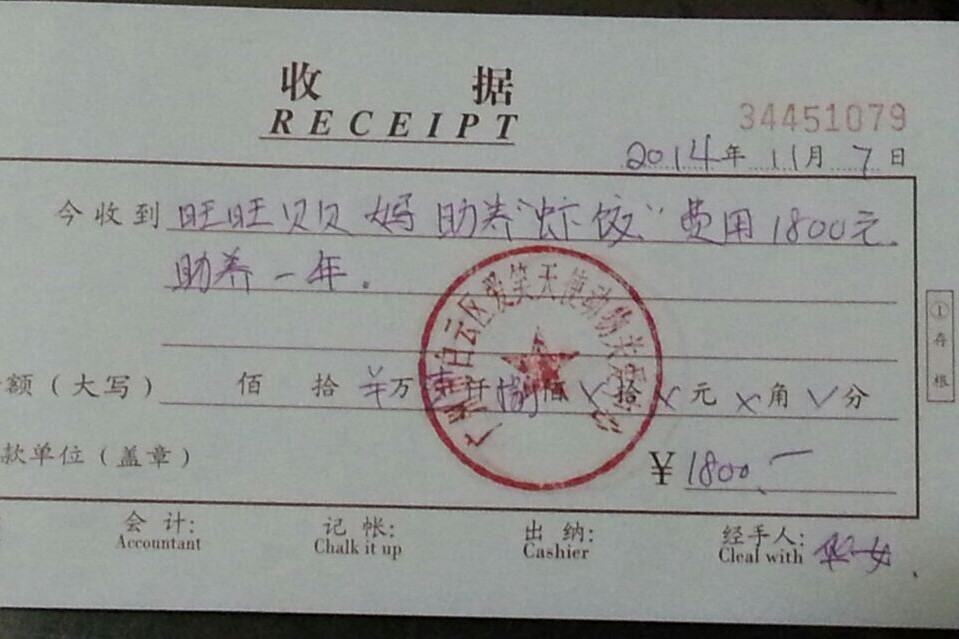 收 据
RECEIPT
34451079
2014年11月7日
今收到 旺旺贝贝妈 助养“虾饺”费用1800元.
助养一年.
广州白云区爱笑天使动物关爱
额(大写) 佰 拾 万 仟 捌佰 拾 元 角 分
款单位(盖章) ¥1800.一
①存根
会计: 记帐: 出纳: 经手人:
Accountant Chalk it up Cashier Cleal with